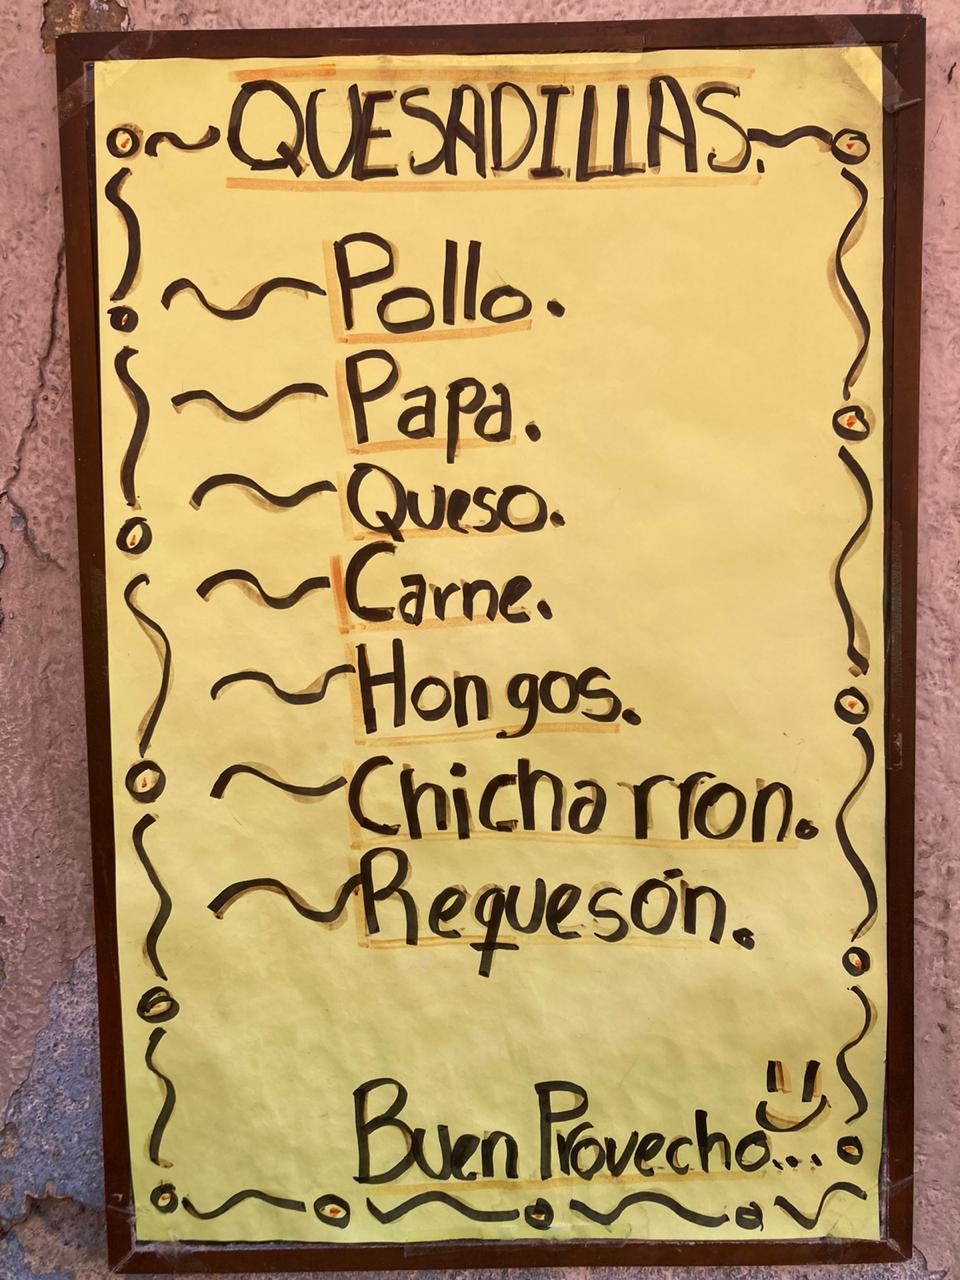 QUESADILLAS.
Pollo.
Papa.
Queso.
Carne.
Hongos.
Chicharron.
Requesón.
Buen Provecho...